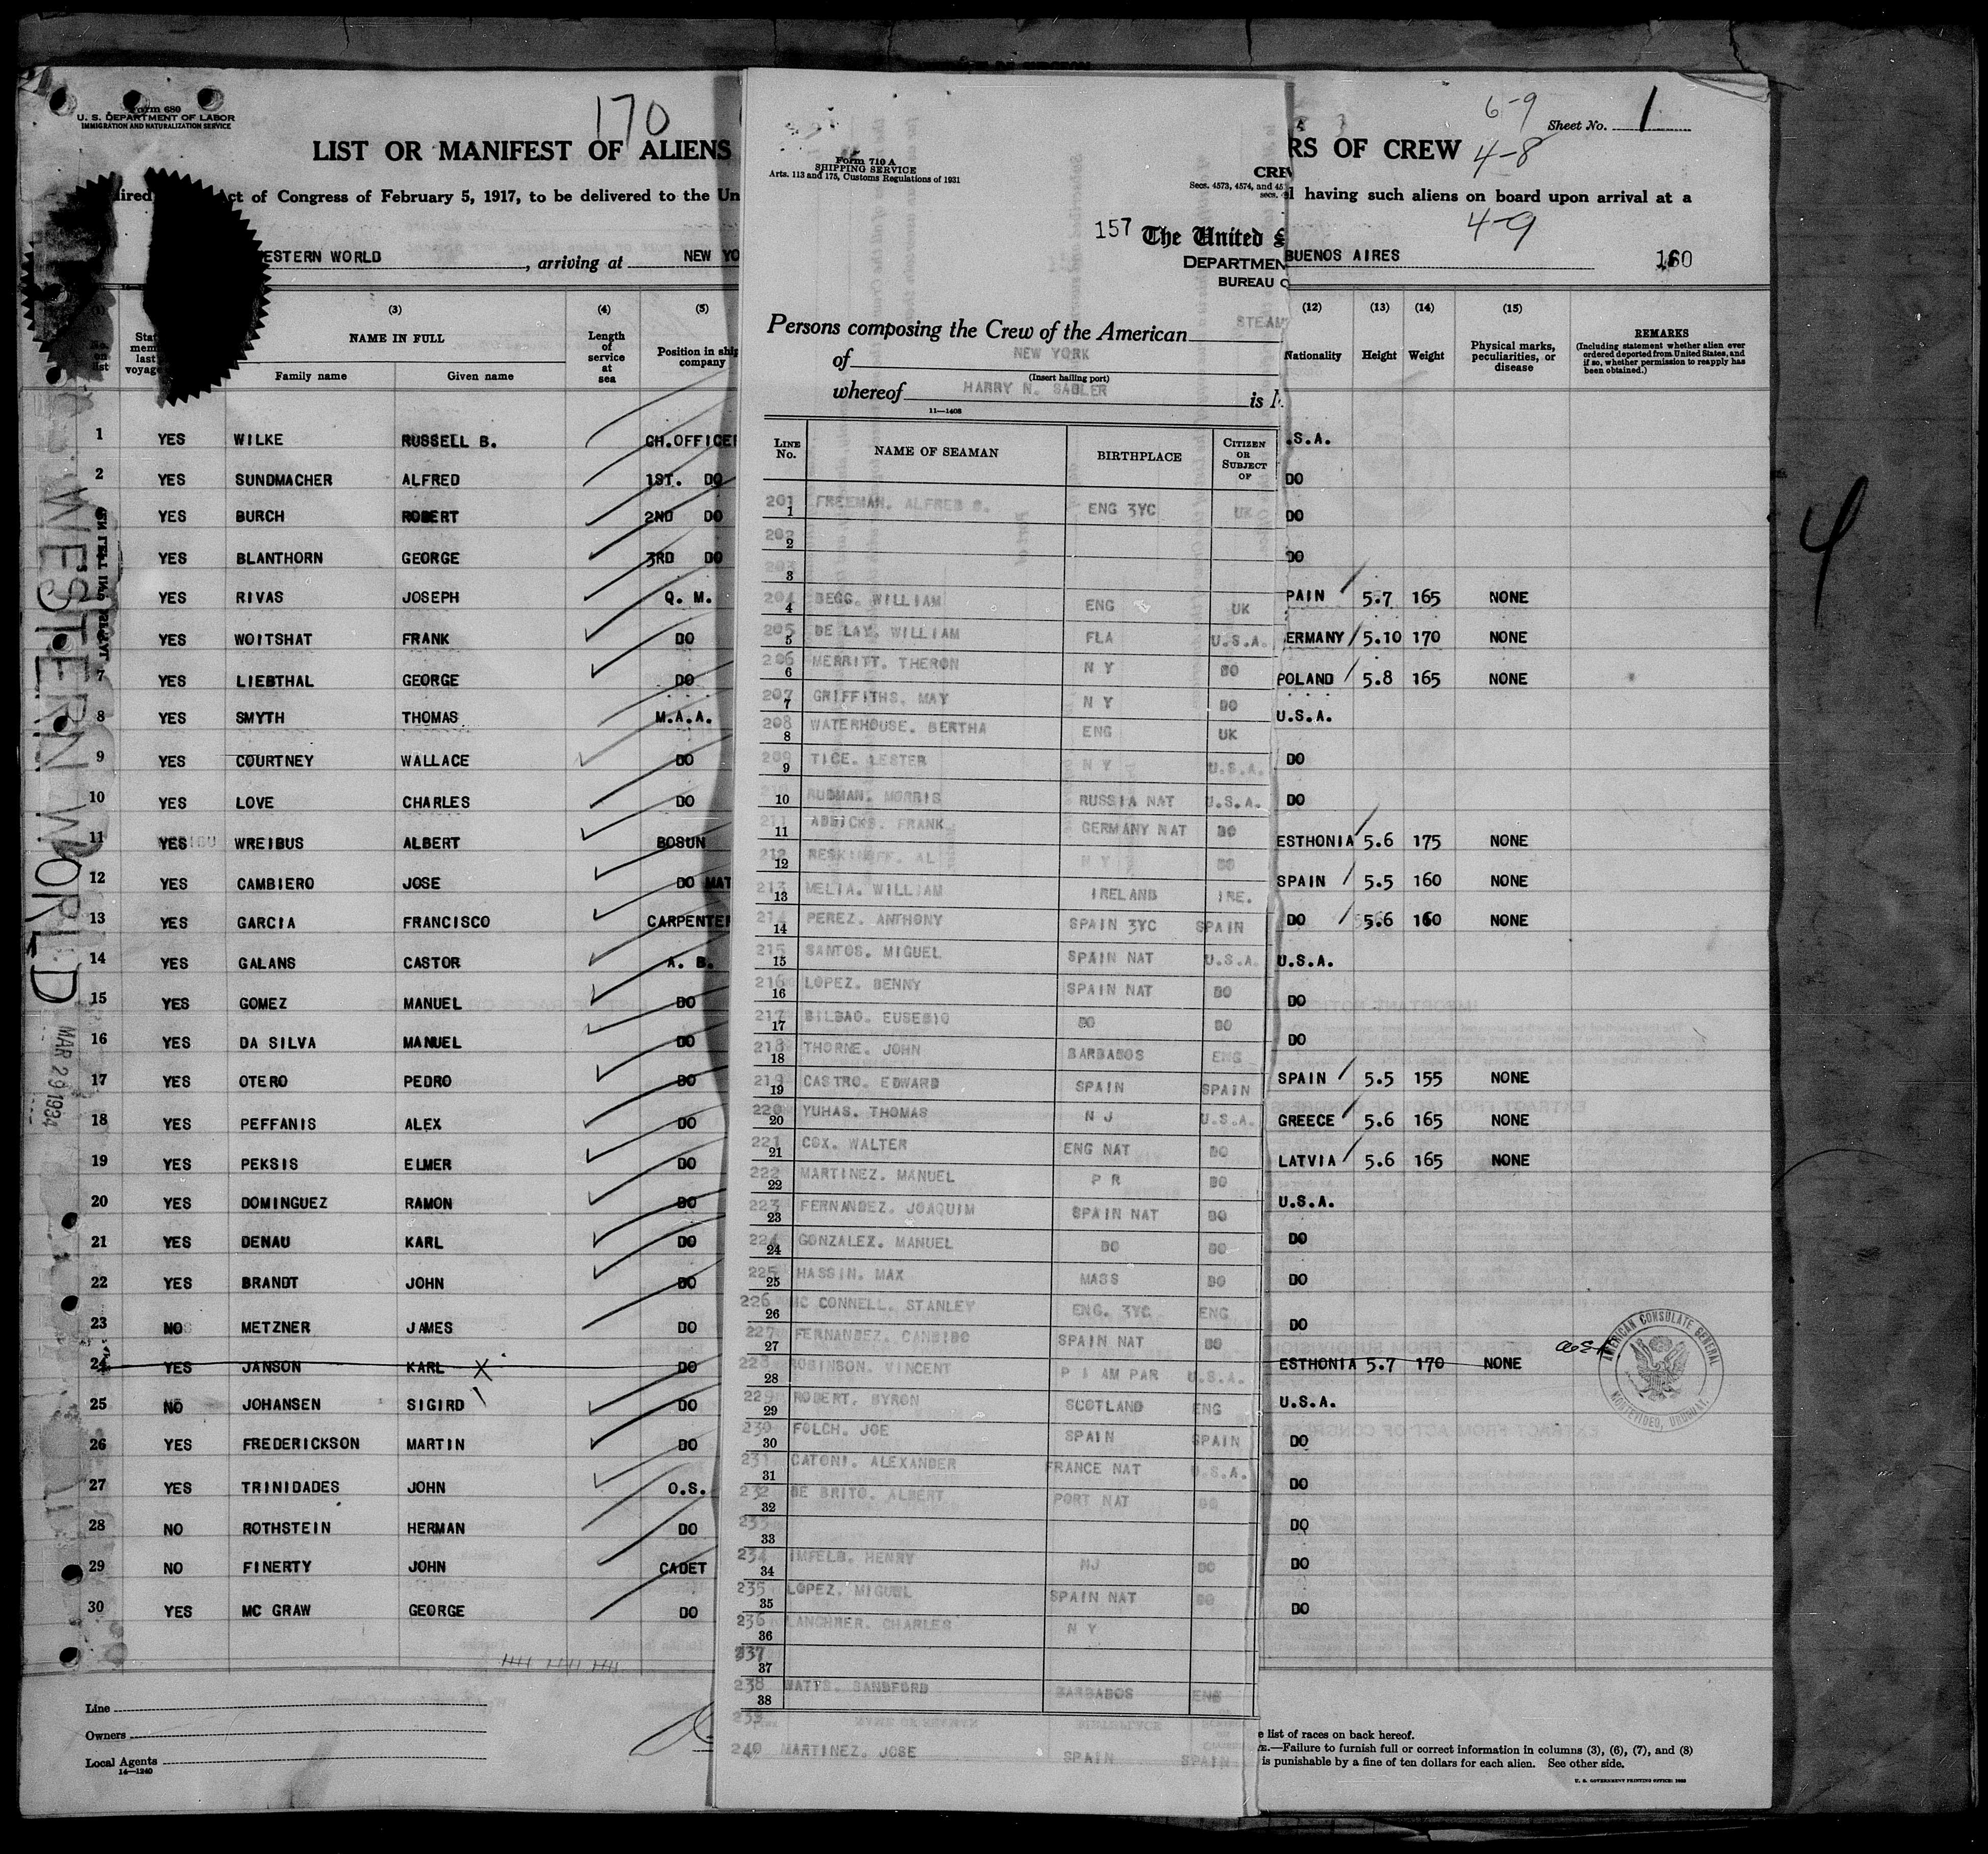 Form 680
U. S. DEPARTMENT OF LABOR
IMMIGRATION AND NATURALIZATION SERVICE
170
LIST OR MANIFEST OF ALIENS
ct of Congress of February 5, 1917, to be delivered to the Un
ESTERN WORLD, arriving at NEW YO
(3) (4) (5)
NAME IN FULL
Family name Given name
Length of service at sea
Position in ship company
1 YES WILKE RUSSELL B. CH.OFFICE
2 YES SUNDMACHER ALFRED 1ST. DO
YES BURCH ROBERT 2ND DO
YES BLANTHORN GEORGE 3RD DO
YES RIVAS JOSEPH Q. M.
YES WOITSHAT FRANK DO
7 YES LIEBTHAL GEORGE DO
8 YES SMYTH THOMAS M.A.A.
9 YES COURTNEY WALLACE DO
10 YES LOVE CHARLES DO
11 YES WREIBUS ALBERT BOSUN
12 YES CAMBIERO JOSE DO MAT
13 YES GARCIA FRANCISCO CARPENTE
14 YES GALANS CASTOR A. B.
15 YES GOMEZ MANUEL DO
16 YES DA SILVA MANUEL DO
17 YES OTERO PEDRO DO
18 YES PEFFANIS ALEX DO
19 YES PEKSIS ELMER DO
20 YES DOMINGUEZ RAMON DO
21 YES DENAU KARL DO
22 YES BRANDT JOHN DO
23 NO METZNER JAMES DO
24 YES JANSON KARL X DO
25 NO JOHANSEN SIGIRD DO
26 YES FREDERICKSON MARTIN DO
27 YES TRINIDADES JOHN O.S.
28 NO ROTHSTEIN HERMAN DO
29 NO FINERTY JOHN CADET
30 YES MC GRAW GEORGE DO
Line
Owners
Local Agents
14—1240
WESTERN WORLD
MAR 29 1934
Form 710 A
SHIPPING SERVICE
Arts. 113 and 175, Customs Regulations of 1931
CRE
Secs. 4573, 4574, and 45
secs.
157 The United S
DEPARTMEN
BUREAU O
Persons composing the Crew of the American STEAM
of NEW YORK
(Insert hailing port)
whereof HARRY N. SADLER is M
11—1408
LINE No. NAME OF SEAMAN BIRTHPLACE CITIZEN OR SUBJECT OF
201 1 FREEMAN. ALFRED ENG 3YC UK
202 2
203 3
204 4 BEGG. WILLIAM ENG UK
205 5 DE LAY. WILLIAM FLA U.S.A.
206 6 MERRITT. THERON N Y DO
207 7 GRIFFITHS. MAY N Y DO
208 8 WATERHOUSE. BERTHA ENG UK
209 9 TICE. LESTER N Y U.S.A.
10 RUDMAN. MORRIS RUSSIA NAT U.S.A.
211 11 ADDICKS. FRANK GERMANY NAT DO
212 12 AL N Y DO
213 13 MELIA. WILLIAM IRELAND IRE.
214 14 PEREZ. ANTHONY SPAIN 3YC SPAIN
215 15 SANTOS. MIGUEL SPAIN NAT U.S.A.
216 16 LOPEZ. BENNY SPAIN NAT DO
217 17 BILBAO. EUSEBIO DO DO
218 18 THORNE. JOHN BARBADOS ENG
219 19 CASTRO. EDWARD SPAIN SPAIN
220 20 YUHAS. THOMAS N J U.S.A.
221 21 COX. WALTER ENG NAT DO
222 22 MARTINEZ. MANUEL P R DO
223 23 FERNANDEZ. JOAQUIM SPAIN NAT DO
224 24 GONZALEZ. MANUEL DO DO
225 25 HASSIN. MAX MASS DO
226 26 MC CONNELL. STANLEY ENG. 3YC ENG
227 27 FERNANDEZ. CANDIDO SPAIN NAT DO
228 28 ROBINSON. VINCENT P I AM PAR U.S.A.
229 29 ROBERT. BYRON SCOTLAND ENG
230 30 FOLCH. JOE SPAIN SPAIN
231 31 CATONI. ALEXANDER FRANCE NAT U.S.A.
232 32 DE BRITO. ALBERT PORT NAT DO
233 33
234 34 IMFELD. HENRY NJ DO
235 35 LOPEZ. MIGUEL SPAIN NAT DO
236 36 LANCHNER. CHARLES N Y
237 37
238 38 WATTS. SANDFORD BARBADOS ENG
239
240 MARTINEZ. JOSE SPAIN SPAIN
6-9
Sheet No. 1
RS OF CREW 4-8
l having such aliens on board upon arrival at a
4-9
BUENOS AIRES 160
(12) (13) (14) (15)
Nationality Height Weight
Physical marks, peculiarities, or disease
REMARKS
(Including statement whether alien ever ordered deported from United States, and if so, whether permission to reapply has been obtained.)
.S.A.
DO
DO
DO
PAIN 5.7 165 NONE
ERMANY 5.10 170 NONE
POLAND 5.8 165 NONE
U.S.A.
DO
DO
ESTHONIA 5.6 175 NONE
SPAIN 5.5 160 NONE
DO 5.6 160 NONE
U.S.A.
DO
DO
SPAIN 5.5 155 NONE
GREECE 5.6 165 NONE
LATVIA 5.6 165 NONE
U.S.A.
DO
DO
DO
ESTHONIA 5.7 170 NONE
U.S.A.
DO
DO
DO
DO
DO
AMERICAN CONSULATE GENERAL
MONTEVIDEO, URUGUAY.
4
e list of races on back hereof.
—Failure to furnish full or correct information in columns (3), (6), (7), and (8)
is punishable by a fine of ten dollars for each alien. See other side.
U. S. GOVERNMENT PRINTING OFFICE